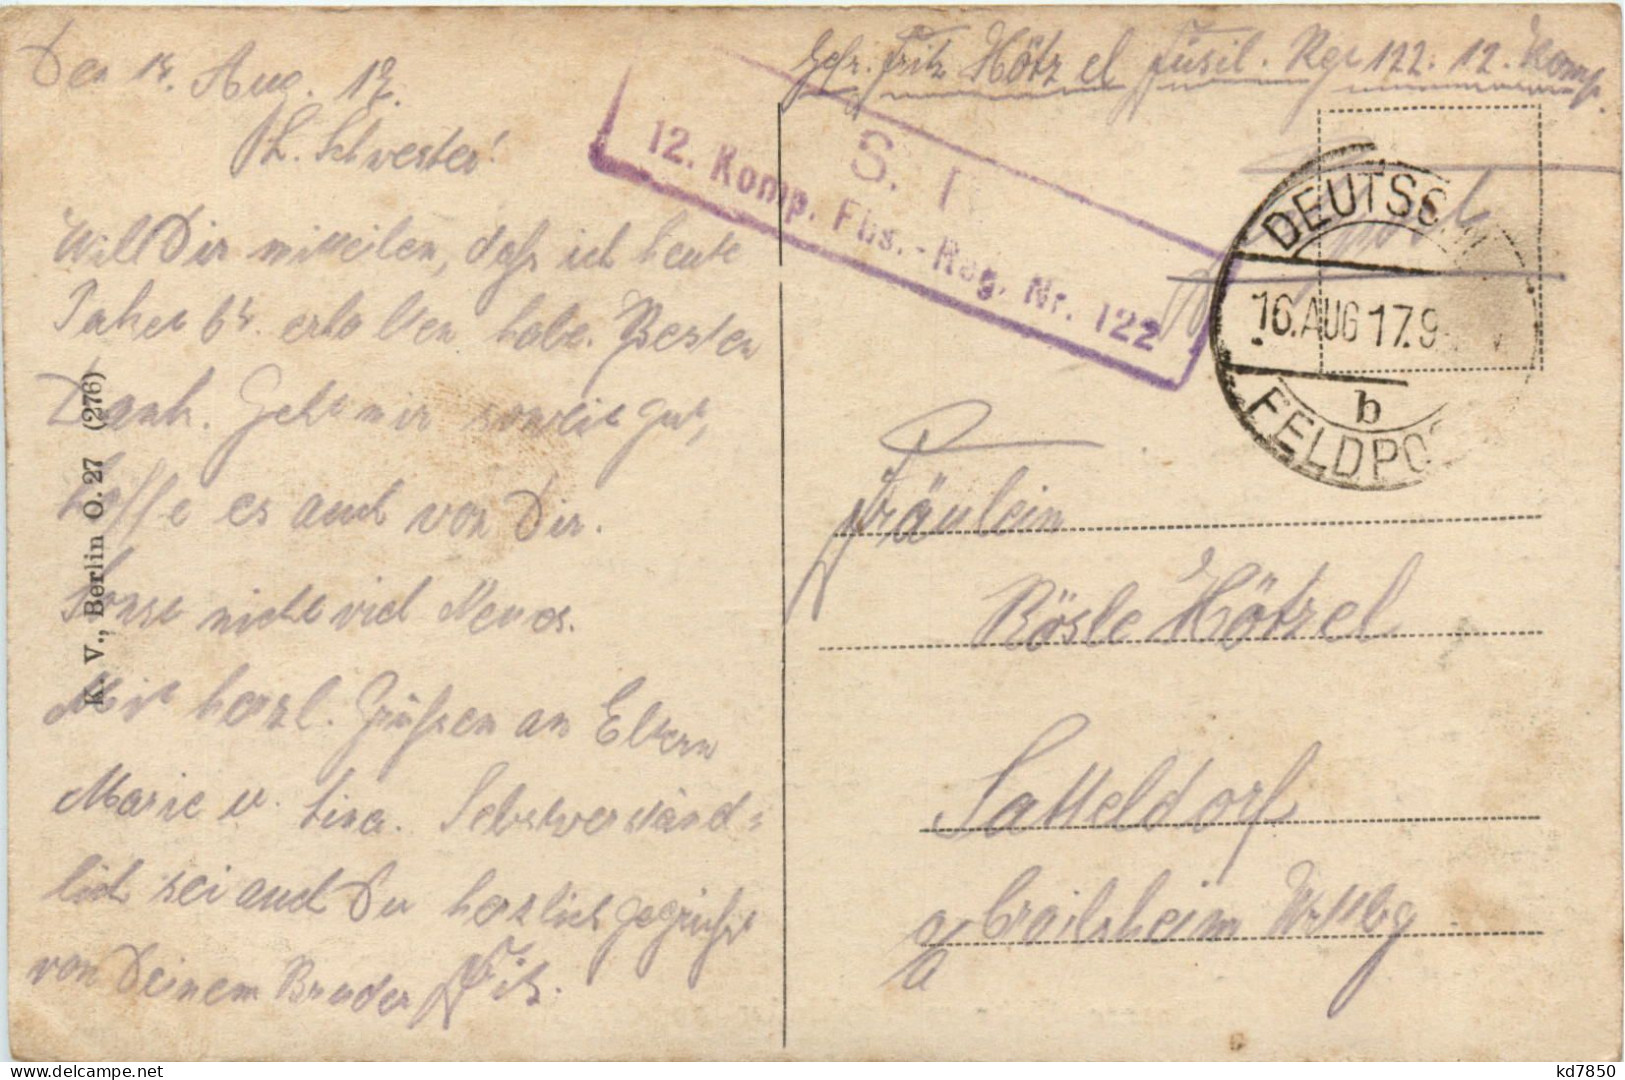 Den 14. Aug. 17.
L. Schwester!
Will Dir mitteilen, daß ich heute
Paket 64. erhalten habe. Besten
Dank. Geht mir soweit gut,
hoffe es auch von Dir.
Sonst nicht viel Neues.
Mit herzl. Grüßen an Eltern
Marie u. Lina. Selbstverständ-
lich sei auch Du herzlich gegrüßt
von Deinem Bruder Fritz.
K. V., Berlin O. 27 (276)
Gefr. Fritz Hötzel Füsil. Rgt 122. 12. Komp.
S. 
12. Komp. Füs.-Reg. Nr. 122
Feldpost
DEUTSCH
16.AUG 17.9
b
FELDPOS
Fräulein
Rösle Hötzel
Satteldorf
Crailsheim Wrttbg
kd7850